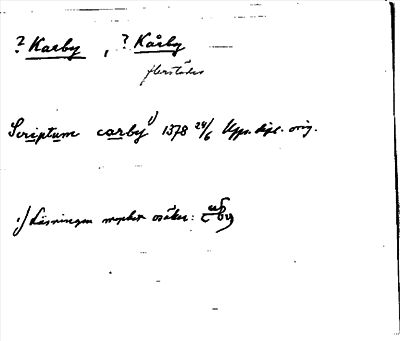 ? Karby , ? Kårby
flerstädes
Scriptum carby 1) 1378 24/6 Upps. dipl. orig.
1) Läsningen mycket osäker: